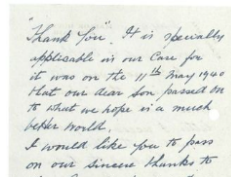 "Thank You". It is specially
applicable in our Case for
it was on the 11th May 1940
that our dear son passed on
to what we hope is a much
better world.
I would like you to pass
on our sincere thanks to